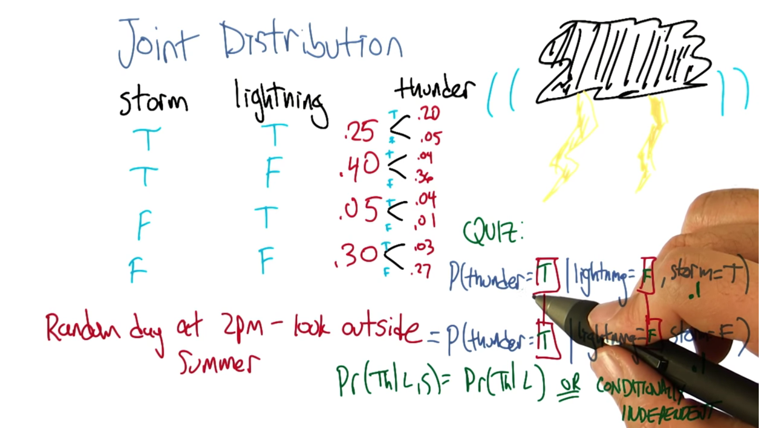 Joint Distribution
storm lightning thunder
T T .25 T .20
F .05
T F .40 T .04
F .36
F T .05 T .04
F .01
F F .30 T .03
F .27
QUIZ:
P(thunder=T | lightning=F, storm=T)
.1
Random day at 2pm - look outside
Summer
= P(thunder=T | lightning=F storm=F)
.1
Pr(Th|L,S) = Pr(Th|L) OR CONDITIONALLY
INDEPENDENT